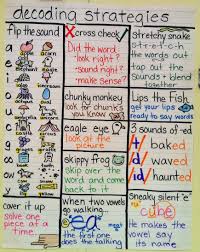 decoding strategies
flip the sound
a
acorn
apple
e
i
o
u
c
g
y
cover it up
solve one
piece at a
time.
X cross check ✓
Did the word
-look right?
-sound right?
-make sense?
chunky monkey
look for chunks
you know
eagle eye
look at the
picture
skippy frog
skip over the
word and come
back to it
when two vowels
go walking...
ea
the first one
does the talking
stretchy snake
s-t-r-e-t-c-h
the words out
tap out the
sounds + blend
together
Lips the fish
get your lips
ready to say words
3 sounds of -ed
/t/ baked
/d/ waved
/id/ haunted
Sneaky silent "e"
cube
He makes the
vowel say
its name